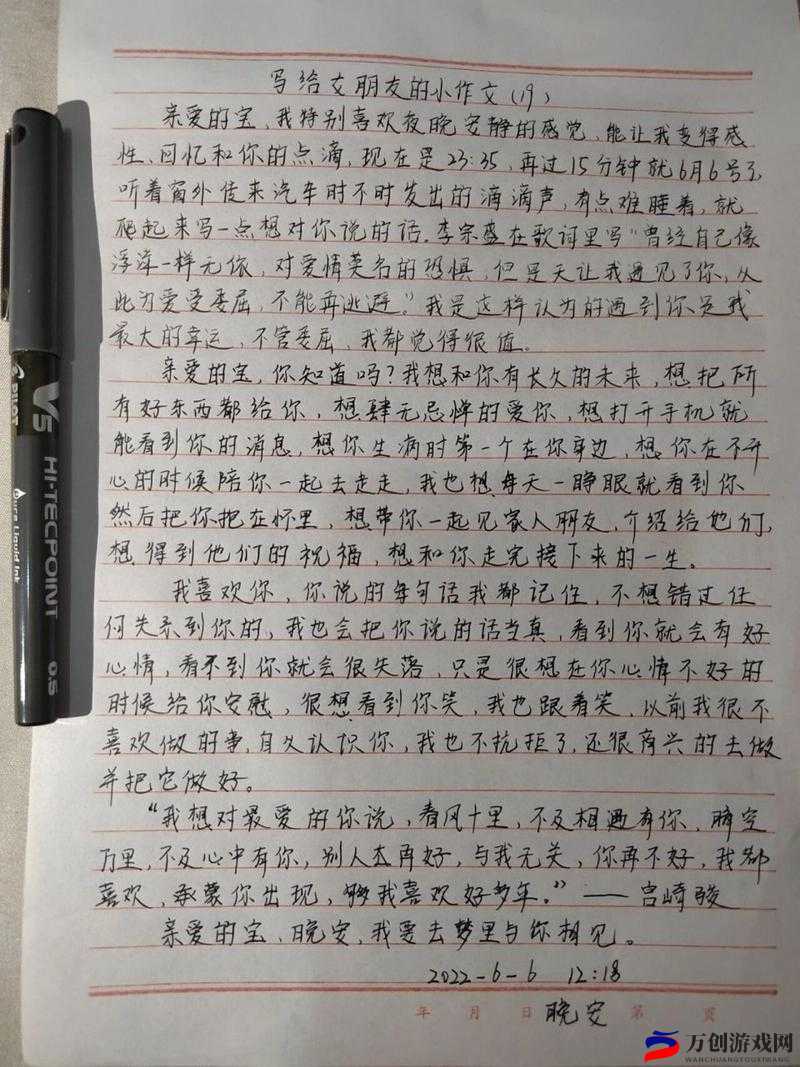 写给女朋友的小作文(19)
亲爱的宝、我特别喜欢夜晚安静的感觉、能让我变得感
性、回忆和你的点滴，现在是23:35，再过15分钟就6月6号了
听着窗外传来汽车时不时发出的滴滴声，有点难睡着，就
爬起来写一点想对你说的话。李宗盛在歌词里写“曾经自己像
浮萍一样无依，对爱情莫名的恐惧，但是天让我遇见了你，从
此为爱受委屈，不能再逃避。”我是这样认为的遇到你是我
最大的幸运，不管委屈，我都觉得很值。
亲爱的宝，你知道吗？我想和你有长久的未来，想把所
有好东西都给你，想肆无忌惮的爱你，想打开手机就
能看到你的消息，想你生病时第一个在你身边，想你在不开
心的时候陪你一起去走走，我也想每天一睁眼就看到你
然后把你抱在怀里，想带你一起见家人朋友，介绍给他们，
想得到他们的祝福，想和你走完接下来的一生。
我喜欢你，你说的每句话我都记住，不想错过任
何关系到你的，我也会把你说的话当真，看到你就会有好
心情，看不到你就会很失落，只是很想在你心情不好的
时候给你安慰，很想看到你笑，我也跟着笑，以前我很不
喜欢做的事，自从认识你，我也不抗拒了，还很高兴的去做
并把它做好。
“我想对最爱的你说，春风十里，不及相遇有你，晴空
万里，不及心中有你，别人在再好，与我无关，你再不好，我都
喜欢，承蒙你出现，够我喜欢好多年。”——宫崎骏
亲爱的宝、晚安，我要去梦里与你相见。
2022-6-6 12:18
年 月 日 晚安 第 页
V5
HI-TECPOINT
0.5
PILOT
Pure Liquid Ink
万创游戏网
WANCHUANGYOUXIWANG